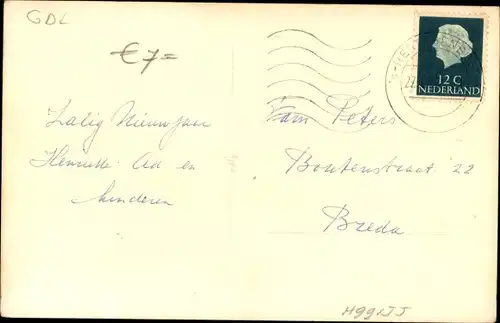 GDL
€ 7=
12 C
NEDERLAND
Zalig Nieuwjaar
Henriette Ad en
kinderen
Fam Peters
Boutenstraat 22
Breda
H991JJ